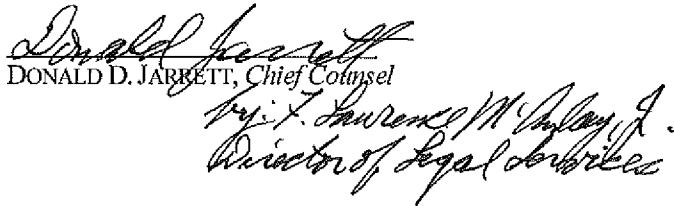 Donald Jarrett
DONALD D. JARRETT, Chief Counsel
by: F. Laurence McAulay, Jr.
Director of Legal Services